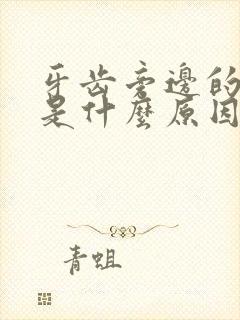 牙齿旁邊的
是什麼原因
青蛆